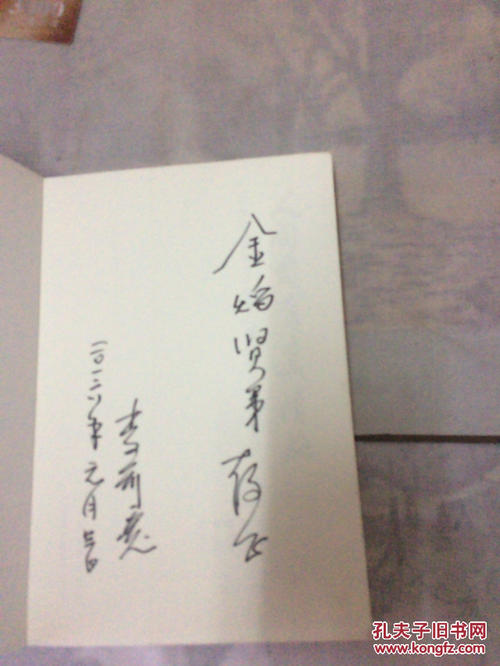 金焰贤弟存正
李前宽
二〇一二年元月
孔夫子旧书网
www.kongfz.com